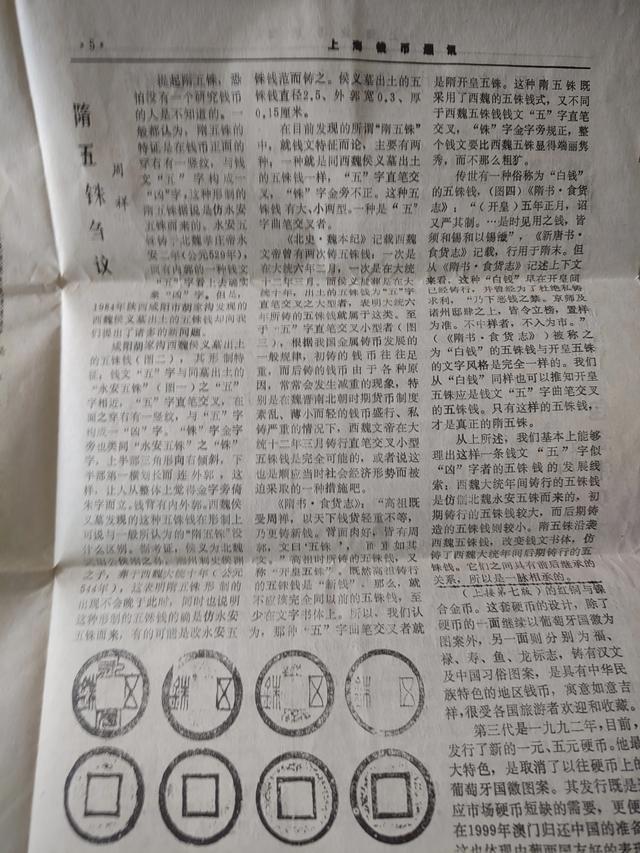 ·5·
上海钱币通讯
隋五铢刍议
周祥
提起隋五铢，恐
怕没有一个研究钱币
的人是不知道的。一
般都认为，隋五铢的
特征是在钱币正面的
穿右有一竖纹，与钱
文“五”字构成一
“凶”字，这种形制的
隋五铢据说是仿永安
五铢而来的。永安五
铢铸于北魏孝庄帝永
安二年(公元529年)，
面有内郭的一种钱文
“五”字看上去确实
象“凶”字。但是，
1984年陕西咸阳市胡家沟发现的
西魏侯义墓出土的五铢钱却向我
们提出了诸多的新问题。
咸阳胡家沟西魏侯义墓出土
的五铢钱(图二)，其形制特
征，钱文“五”字与同墓出土的
“永安五铢”(图一)之“五”
字相近，“五”字直笔交叉，在
面之穿右有一竖纹，与“五”字
构成一“凶”字。“铢”字金字
旁也类同“永安五铢”之“铢”
字，上半部三角形向右倾斜，下
半部第一横划长而连外郭，这
样，让人从整体上觉得金字旁倚
朱字而立。钱背有内外郭。西魏侯
义墓发现的这种五铢钱在形制上
可说与一般所认为的“隋五铢”没
什么区别。据考证，侯义为北魏
之子，葬于西魏大统十年(公元
544年)，这表明隋五铢形制的
出现不会晚于此时，同时也说明
这种形制的五铢钱的确是仿永安
五铢而来，有的可能是改永安五
铢钱范而铸之。侯义墓出土的五
铢钱直径2.5、外郭宽0.3、厚
0.15厘米。
在目前发现的所谓“隋五铢”
中，就钱文特征而论，主要有两
种，一种就是同西魏侯义墓出土
的五铢钱一样，“五”字直笔交
叉，“铢”字金旁不正。这种五
铢钱有大、小两型。一种是“五”
字曲笔交叉者。
《北史·魏本纪》记载西魏
文帝曾有两次铸五铢钱，一次是
在大统六年二月，一次是在大统
十二年三月。而侯义墓葬是在大
统十年，出土的五铢钱为“五”字
直笔交叉之大型者，表明大统六
年所铸的五铢钱就属于这类。至
于“五”字直笔交叉小型者(图
三)，根据我国金属铸币发展的
一般规律，初铸的钱币往往足
重，而后铸的钱币由于各种原
因，常常会发生减重的现象，特
别是在魏晋南北朝时期货币制度
紊乱，薄小而轻的钱币盛行、私
铸严重的情况下，西魏文帝在大
统十二年三月铸行直笔交叉小型
五铢钱是完全可能的，或者说这
也是顺应当时社会经济形势而被
迫采取的一种措施吧。
《隋书·食货志》：“高祖既
受周禅，以天下钱货轻重不等，
乃更铸新钱。背面肉好，皆有周
郭，文曰‘五铢’，而重如其
文。”高祖时所铸的五铢钱，又
称“开皇五铢”。既然高祖铸行
的五铢钱是“新钱”，那么，就
不应该完全同以前的五铢钱，至
少在文字书体上。所以，我们认
为，那种“五”字曲笔交叉者就
是隋开皇五铢。这种隋五铢既
采用了西魏的五铢钱式，又不同
于西魏五铢钱钱文“五”字直笔
交叉，“铢”字金字旁规正，整
个钱文要比西魏五铢显得端丽隽
秀，而不那么粗犷。
传世有一种俗称为“白钱”
的五铢钱，(图四)《隋书·食货
志》：“(开皇)五年正月，诏
又严其制。…是时见用之钱，皆
须和锡和以锡镴”，《新唐书·
食货志》记载，行用于隋末。但
从《隋书·食货志》记述上下文
来看，这种“白钱”早在开皇间
已经铸行，并曾经为了杜绝私铸
求利，“乃下恶钱之禁。京师及
诸州邸肆之上，皆令立榜，置样
为准。不中样者，不入为市。”
(《隋书·食货志》)被称之
为“白钱”的五铢钱与开皇五铢
的文字风格是完全一样的。我们
从“白钱”同样也可以推知开皇
五铢应是钱文“五”字曲笔交叉
的五铢钱。只有这样的五铢钱，
才是真正的隋五铢。
从上所述，我们基本上能够
理出这样一条钱文“五”字似
“凶”字者的五铢钱的发展线
索：西魏大统年间铸行的五铢钱
是仿制北魏永安五铢而来的，初
期铸行的五铢钱较大，而后期铸
造的五铢钱则较小。隋五铢沿袭
西魏五铢钱，改变钱文书体，仿
铸了西魏大统年间后期铸行的五
铢钱。它们之间具有前后继承的
关系，所以是一脉相承的。
(上接第七版)的红铜与镍
合金币。这套硬币的设计，除了
硬币的一面继续以葡萄牙国徽为
图案外，另一面则分别为福、
禄、寿、鱼、龙标志，铸有汉文
及中国习俗图案，是具有中华民
族特色的地区钱币，寓意如意吉
祥，很受各国旅游者欢迎和收藏。
第三代是一九九二年，目前，
发行了新的一元、五元硬币。他最
大特色，是取消了以往硬币上的
葡萄牙国徽图案。其发行既是适
应市场硬币短缺的需要，更便
在1999年澳门归还中国的准备
这也体现中葡两国友好的表现